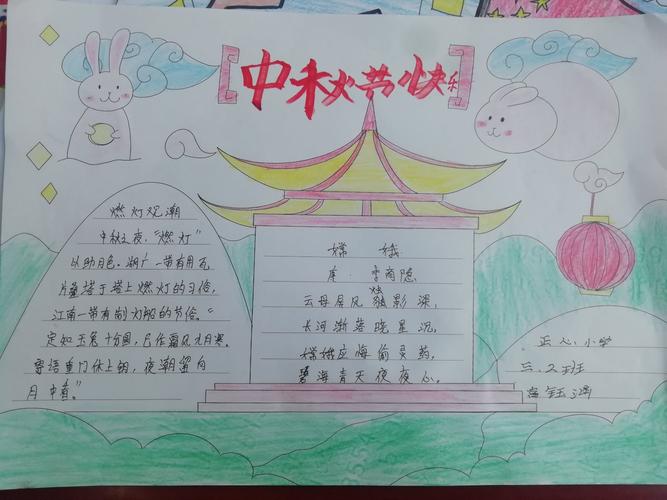 中秋节快乐
燃灯观潮
中秋之夜，“燃灯”
以助月色。湖广一带有用瓦
片叠塔于塔上燃灯的习俗，
江南一带有制灯船的节俗。“
定知玉兔十分圆，已作霜风九月寒。
寄语重门休上钥，夜潮留向
月中看。”
嫦娥
唐·李商隐
云母屏风烛影深，
长河渐落晓星沉，
嫦娥应悔偷灵药，
碧海青天夜夜心。
正心小学
三.2班